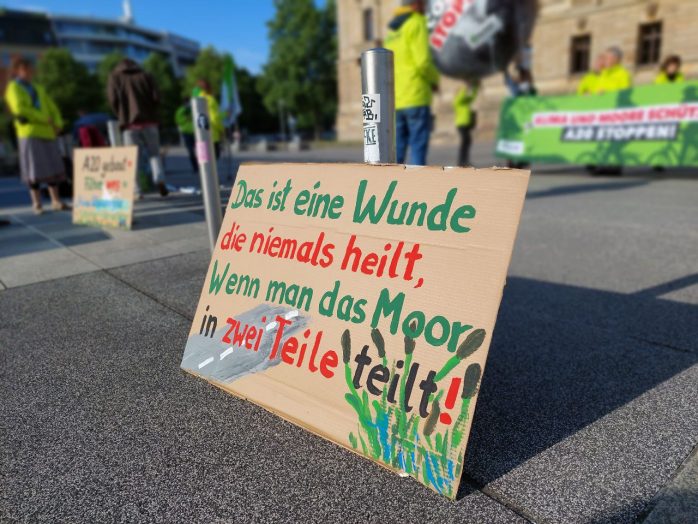 Das ist eine Wunde
die niemals heilt,
Wenn man das Moor
in zwei Teile teilt!
A20 gebaut
STOPP
KLIMA UND MOORE SCHÜTZ
A20 STOPPEN!